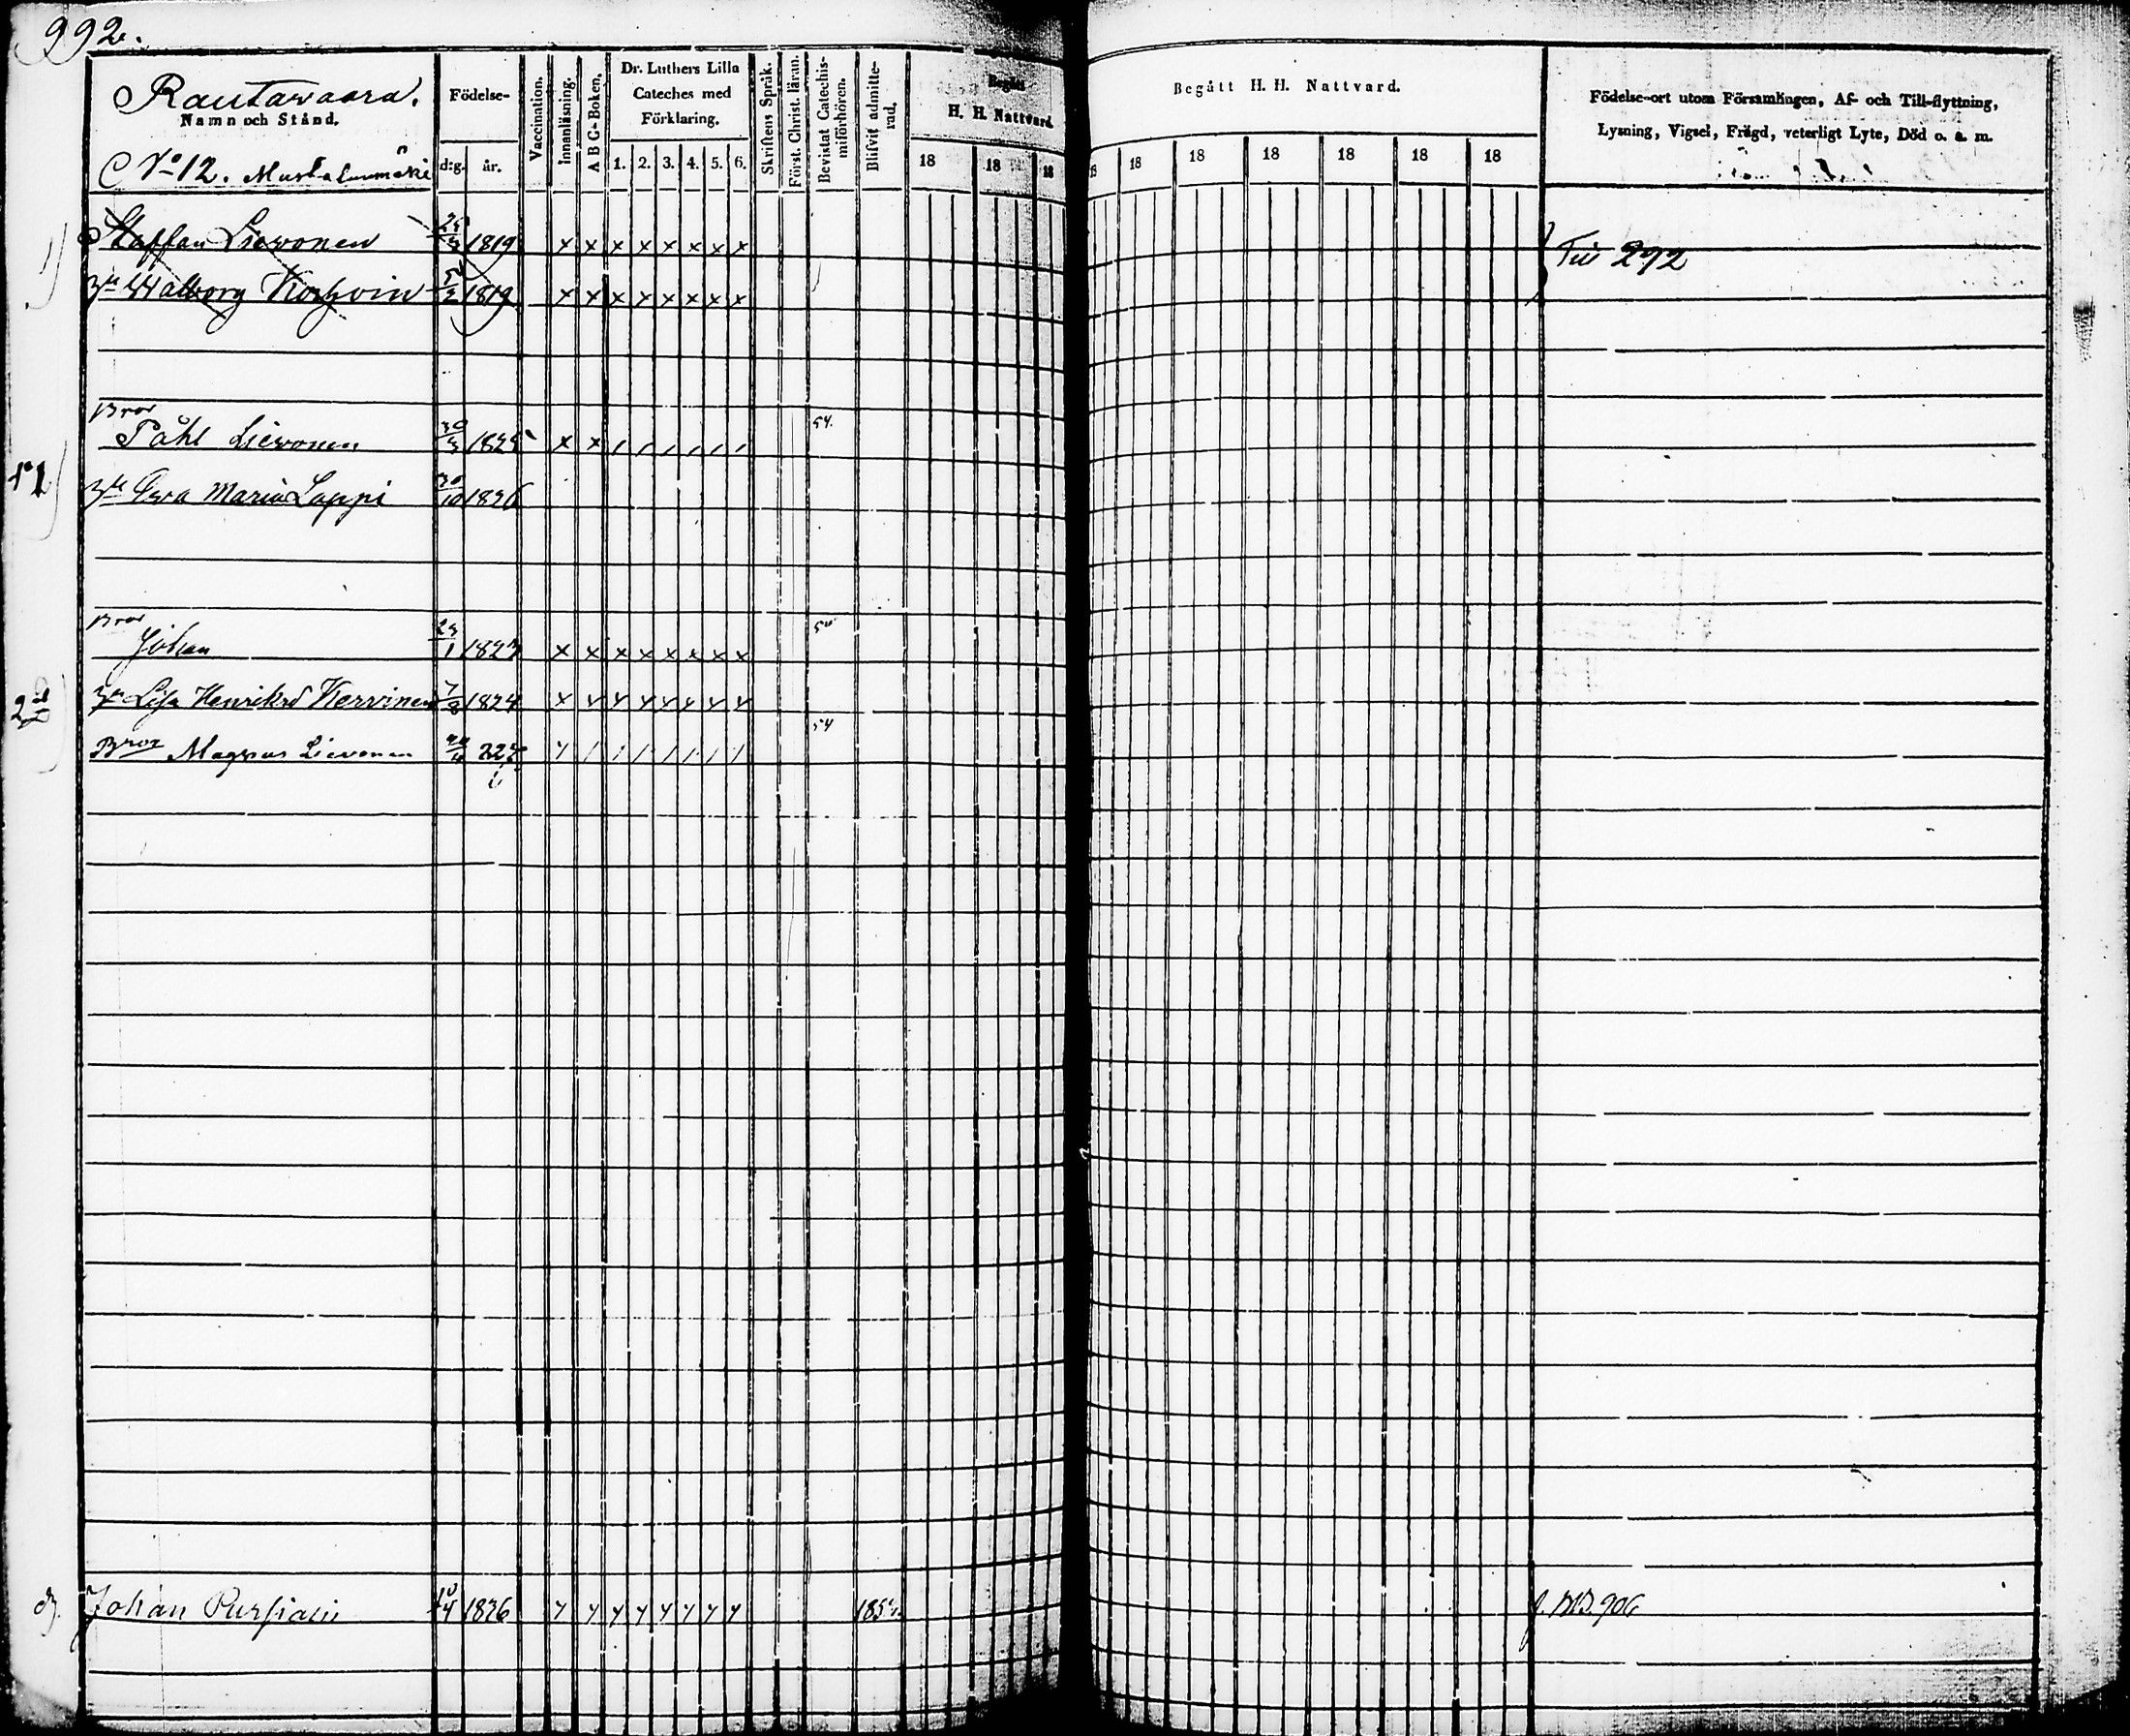 992.
Rautawaara.
Namn och Stånd.
No 12. Mustalanmäki
Födelse-
d:g. år.
Vaccination.
Innanläsning.
A B C-Boken.
Dr. Luthers Lilla
Cateches med
Förklaring.
1. 2. 3. 4. 5. 6.
Skriftens Språk.
Först. Christ. läran.
Bevistat Catechis-
miförhören.
Blifvit admitte-
rad.
Begått
H. H. Nattvard.
18 18 18
Begått H. H. Nattvard.
18 18 18 18 18 18
Födelse-ort utom Församlingen, Af- och Till-flyttning,
Lysning, Vigsel, Frägd, veterligt Lyte, Död o. s. m.
Staffan Liewonen 1819 x x x x x x x x
Till 292
Walborg 5/2 1819 x x x x x x x x
Bror
Påhl Liewonen 30/3 1825 x x / / / / / / 54.
Eva Maria Lappi 30/10 1826
Bror
Johan 23/1 1823 x x x x x x x x
Lisa Henriksd Kervinen 7/8 1824 x x x x x x x x
Bror Magnus Liewonen x / / / / / / / 54
Johan Pursiain 10/4 1836 x x x x x x x x 1854. f. BB. 906